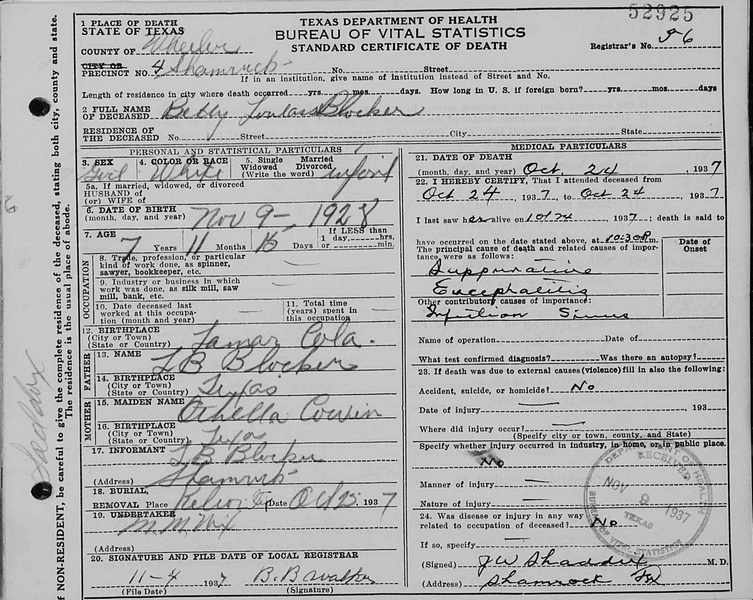 52925
TEXAS DEPARTMENT OF HEALTH
BUREAU OF VITAL STATISTICS
STANDARD CERTIFICATE OF DEATH
Registrar's No. 56
1 PLACE OF DEATH
STATE OF TEXAS
COUNTY OF Wheeler
CITY OR
PRECINCT NO. 4 Shamrock No. Street
If in an institution, give name of institution instead of Street and No.
Length of residence in city where death occurred yrs. mos. days. How long in U. S. if foreign born? yrs. mos. days
2 FULL NAME
OF DECEASED Betty Blocker
RESIDENCE OF
THE DECEASED No. Street City State
PERSONAL AND STATISTICAL PARTICULARS
3. SEX Girl
4. COLOR OR RACE White
5. Single Married
Widowed Divorced
(Write the word) infant
5a. If married, widowed, or divorced
HUSBAND of
(or) WIFE of
6. DATE OF BIRTH
(month, day, and year) Nov 9 - 1928
7. AGE
7 Years 11 Months 15 Days
If LESS than
1 day, hrs.
or min.
OCCUPATION
8. Trade, profession, or particular
kind of work done, as spinner,
sawyer, bookkeeper, etc.
9. Industry or business in which
work was done, as silk mill, saw
mill, bank, etc.
10. Date deceased last
worked at this occu-
pation (month and year)
11. Total time
(years) spent in
this occupation
12. BIRTHPLACE
(City or Town)
(State or Country) Lamar Cola.
FATHER
13. NAME L B Blocker
14. BIRTHPLACE
(City or Town)
(State or Country) Texas
MOTHER
15. MAIDEN NAME Othella Cowin
16. BIRTHPLACE
(City or Town)
(State or Country) Texas
17. INFORMANT L B Blocker
(Address) Shamrock
18. BURIAL,
REMOVAL Place Date Oct 25 1937
19. UNDERTAKER
(Address)
20. SIGNATURE AND FILE DATE OF LOCAL REGISTRAR
11-4 1937 B. B Walker
(File Date) (Signature)
MEDICAL PARTICULARS
21. DATE OF DEATH
(month, day, and year) Oct. 24, 1937
22. I HEREBY CERTIFY, That I attended deceased from
Oct 24, 1937, to Oct 24, 1937
I last saw her alive on 10/24 1937; death is said to
have occurred on the date stated above, at 10:30 P.m.
The principal cause of death and related causes of impor-
tance, were as follows:
Date of
Onset
Suppurative
Encephalitis
Other contributory causes of importance:
Sinus
Name of operation Date of
What test confirmed diagnosis? Was there an autopsy?
23. If death was due to external causes (violence) fill in also the following:
Accident, suicide, or homicide? No
Date of injury , 193
Where did injury occur?
(Specify city or town, county, and State)
Specify whether injury occurred in industry, in home, or in public place.
No
Manner of injury
Nature of injury
24. Was disease or injury in any way
related to occupation of deceased? No
If so, specify
(Signed) M. D.
(Address) Shamrock Tex
DEPARTMENT OF HEALTH
RECEIVED
NOV 9 1937
TEXAS
BUREAU OF VITAL STATISTICS
f NON-RESIDENT, be careful to give the complete residence of the deceased, stating both city, county and state.
The residence is the usual place of abode.